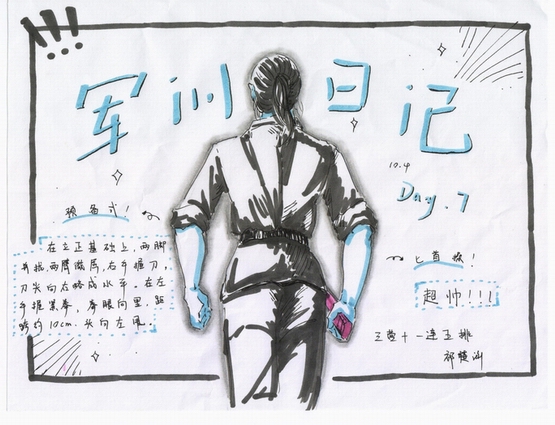 !!!
军训日记
10.4
Day.7
预备式!
在立正基础上,两脚
并拢两臂微屈,右手握刀,
刀尖向右略成水平。在左
手握紧拳,拳眼向里,距
约10cm.头向左甩。
匕首操!
超帅!!!
三营十一连五排